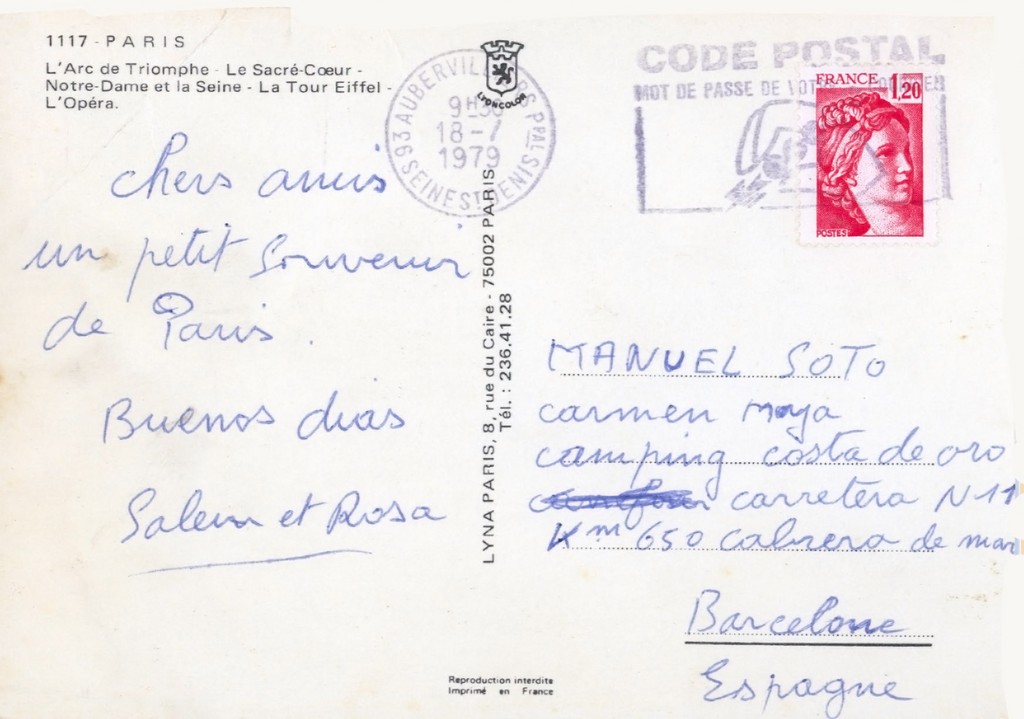 1117 - PARIS
L'Arc de Triomphe - Le Sacré-Cœur -
Notre-Dame et la Seine - La Tour Eiffel -
L'Opéra.
chers amis
un petit souvenir
de Paris.
Buenos dias
Salem et Rosa
93 AUBERVILLIERS PPAL SEINE ST DENIS
9H30
18-7
1979
LYONCOLOR
LYNA PARIS, 8, rue du Caire - 75002 PARIS
Tél. : 236.41.28
CODE POSTAL
MOT DE PASSE DE
FRANCE 1,20
POSTES
MANUEL SOTO
carmen Moya
camping costa de oro
carretera N-11
Km 650 cabrera de mar
Barcelone
Espagne
Reproduction interdite
Imprimé en France